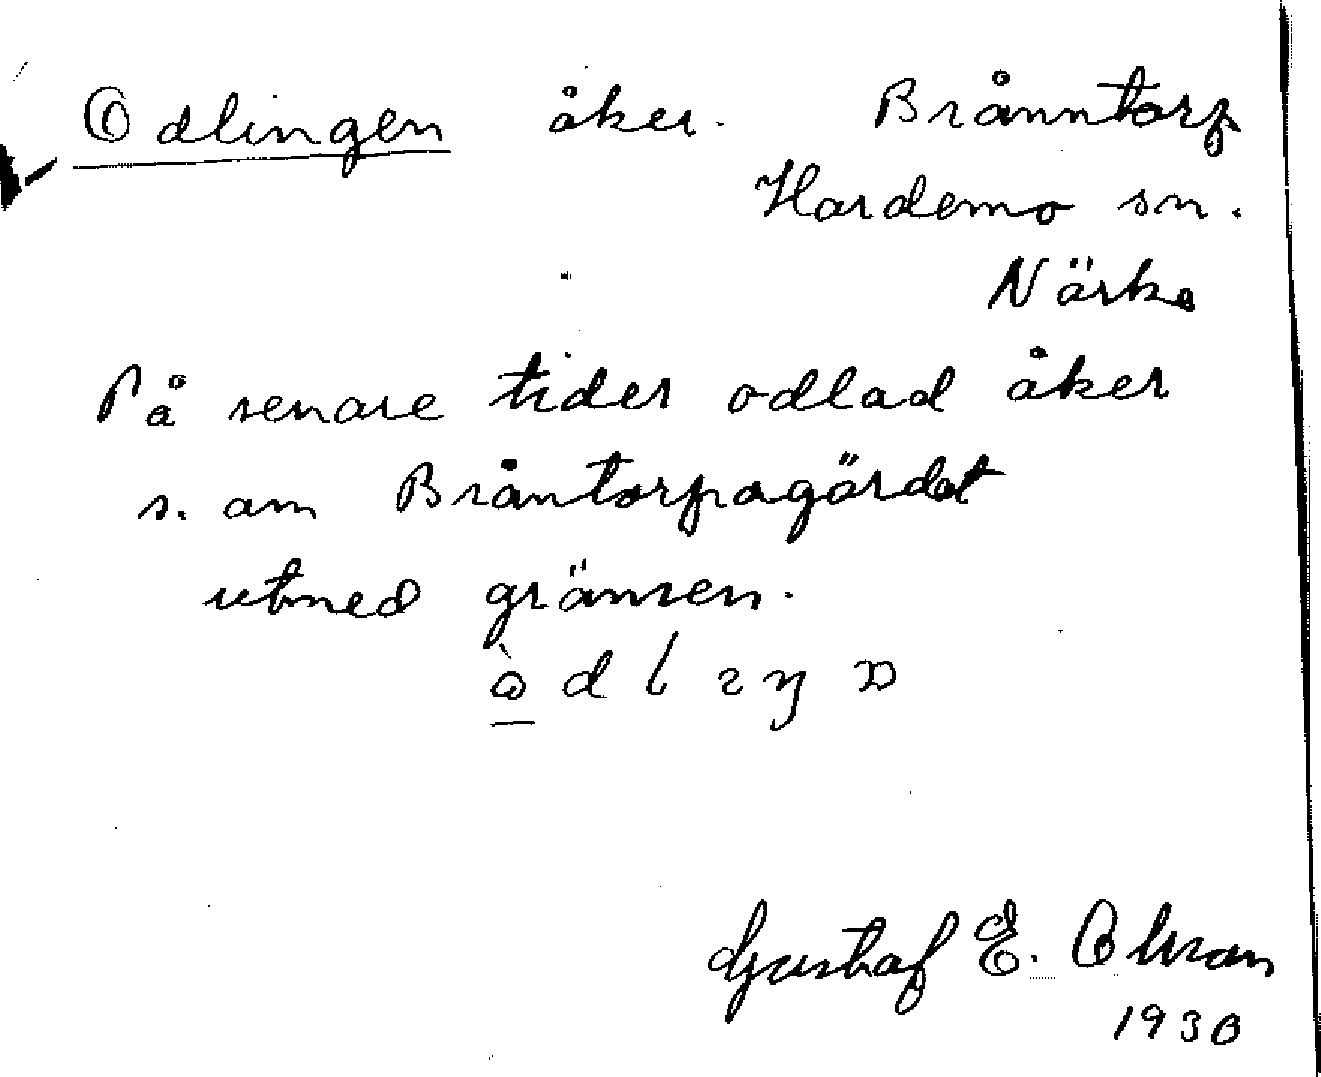 Odlingen åker. Brånntorp
Hardemo sn.
Närke
På senare tider odlad åker
s. om Bråntorpagärdet
utmed gränsen.
Gustaf E. Olson
1930